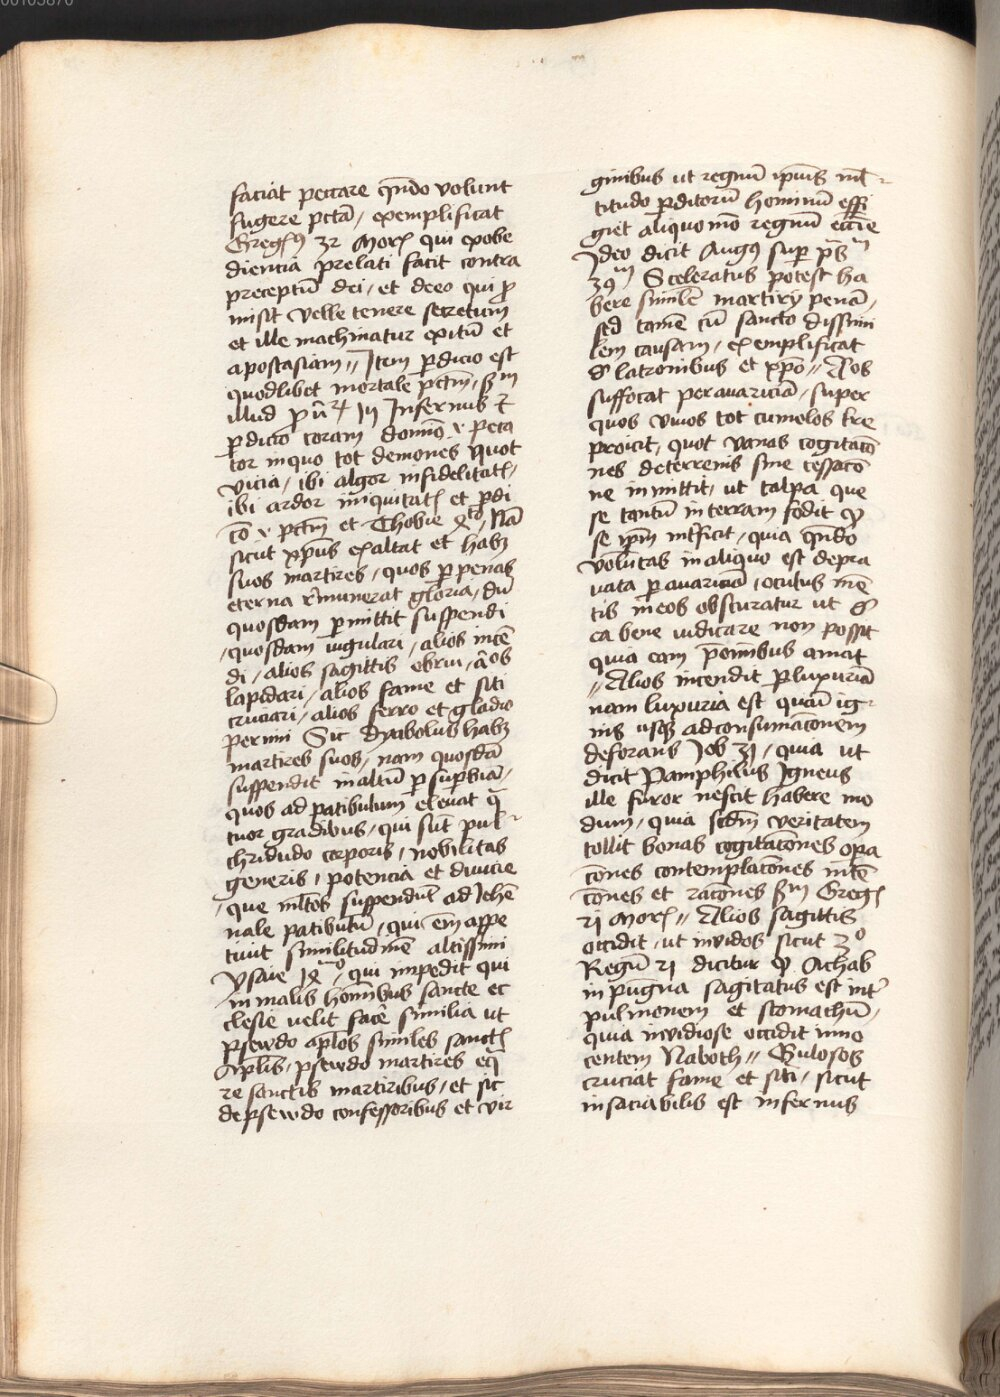 faciāt peccare qn̄do volunt
fugere pctā / exemplificat
Gregꝰ 32 Morꝭ qui ex obe
diencia prelati facit contra
preceptū dei / et deeo qui ꝓ
misit velle tenere secretum
et ille machinatur exitū et
apostasiam // Item ꝑdicio est
quodlibet mortale pctm̄ / scd̄m
illud
ꝑdicio coram domino ... pecca
tor in quo tot demones quot
vicia / ibi algor infidelitatꝭ /
ibi ardor iniquitatꝭ et ꝑdi
cō ... pctm̄ et Thobie ... Nā
sicut xp̄us exaltat et habꝫ
suos martires / quos ꝑ penas
eterna remunerat gloria / dū
quosdam ꝑmittit suspendi
/ quosdam iugulari / alios incē
di / alios sagittis obrui / alios
lapidari / alios fame et siti
cruciari / alios ferro et gladio
perimi Sic dyabolus habꝫ
martires suos / nam quosdā
suspendit in altū ꝑ suꝑbiā /
quos ad patibulum eleuat q̄
tuor gradibus / qui sūt pul
chridudo corporis / nobilitas
generis / potencia et diuicie
/ que ml̄tos suspendūt ad Jehē
nale patibulū / qui em̄ appe
tiuit similitudinē altissimi
Ysaie 14º / qui impedit qui
in malis hominibus sancte ec
clesie uelit facē similia ut
psewdo apl̄os similes sanctꝭ
Apl̄is / psewdo martires eq̄
re sanctis martiribus / et sic
de psewdo confessoribus et vir
ginibus ut regnū ip̄ius ml̄
titudo ꝑditorū hominū effi
giet aliquo mō regnū ecc̄ie
Ideo dicit Augꝰ suꝑ ps̄
39m Sceleratus potest ha
bere similē martirÿ penā /
sed tamē cū sancto dissimi
lem causam / exemplificat
de latronibus et xp̄o // Alios
suffocat per auariciā / super
quos viuos tot cumulos tr̄e
proicit / quot vanas cogitacō
nes de terrenis sine cessacō
ne inmittit / ut talpa que
se tantū in terram fodit qꝫ
se ip̄m int̄ficit / quia qn̄do
voluntas in aliquo est depra
uata ꝑ auariciā / oculus mē
tis in eos obscuratur ut 
ca bene iudicare non possit
quia eam p̄ omnibus amat
// Alios incendit ꝑ luxuriā
nam luxuria est quasi ig
nis usqꝫ ad consumacōnem
deforans Job 31 / quia ut
dicit Pamphilus Igneus
ille furor nescit habere mo
dum / quia scdm̄ veritatem
tollit bonas cogitacōnes oꝑa
cōnes contemplacōnes intē
cōnes et racōnes scd̄m Gregꝭ
21 Morꝭ // Alios sagittis
occidit / ut inuidos sicut 3º
Regū 21 dicitur qꝫ Achab
in pugna sagitatus est int̄
pulmonem et stomachū /
quia inuidiose occidit inno
centem Naboth // Gulosos
cruciat fame et siti / sicut
insaciabilis est infernus